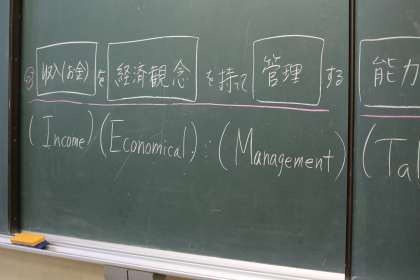 収入(お金)を 経済観念 を持って 管理 する 能力
(Income) (Economical) : (Management) (Tal